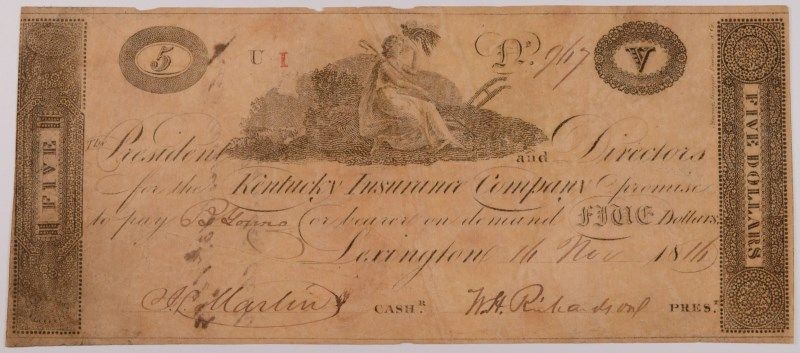 5 U I No. 967 V
The President and Directors
for the Kentucky Insurance Company promise
to pay or bearer on demand FIVE Dollars
Lexington 16 Nov 1816
Martin CASHR. W. H. Richardson PREST.
FIVE
FIVE DOLLARS